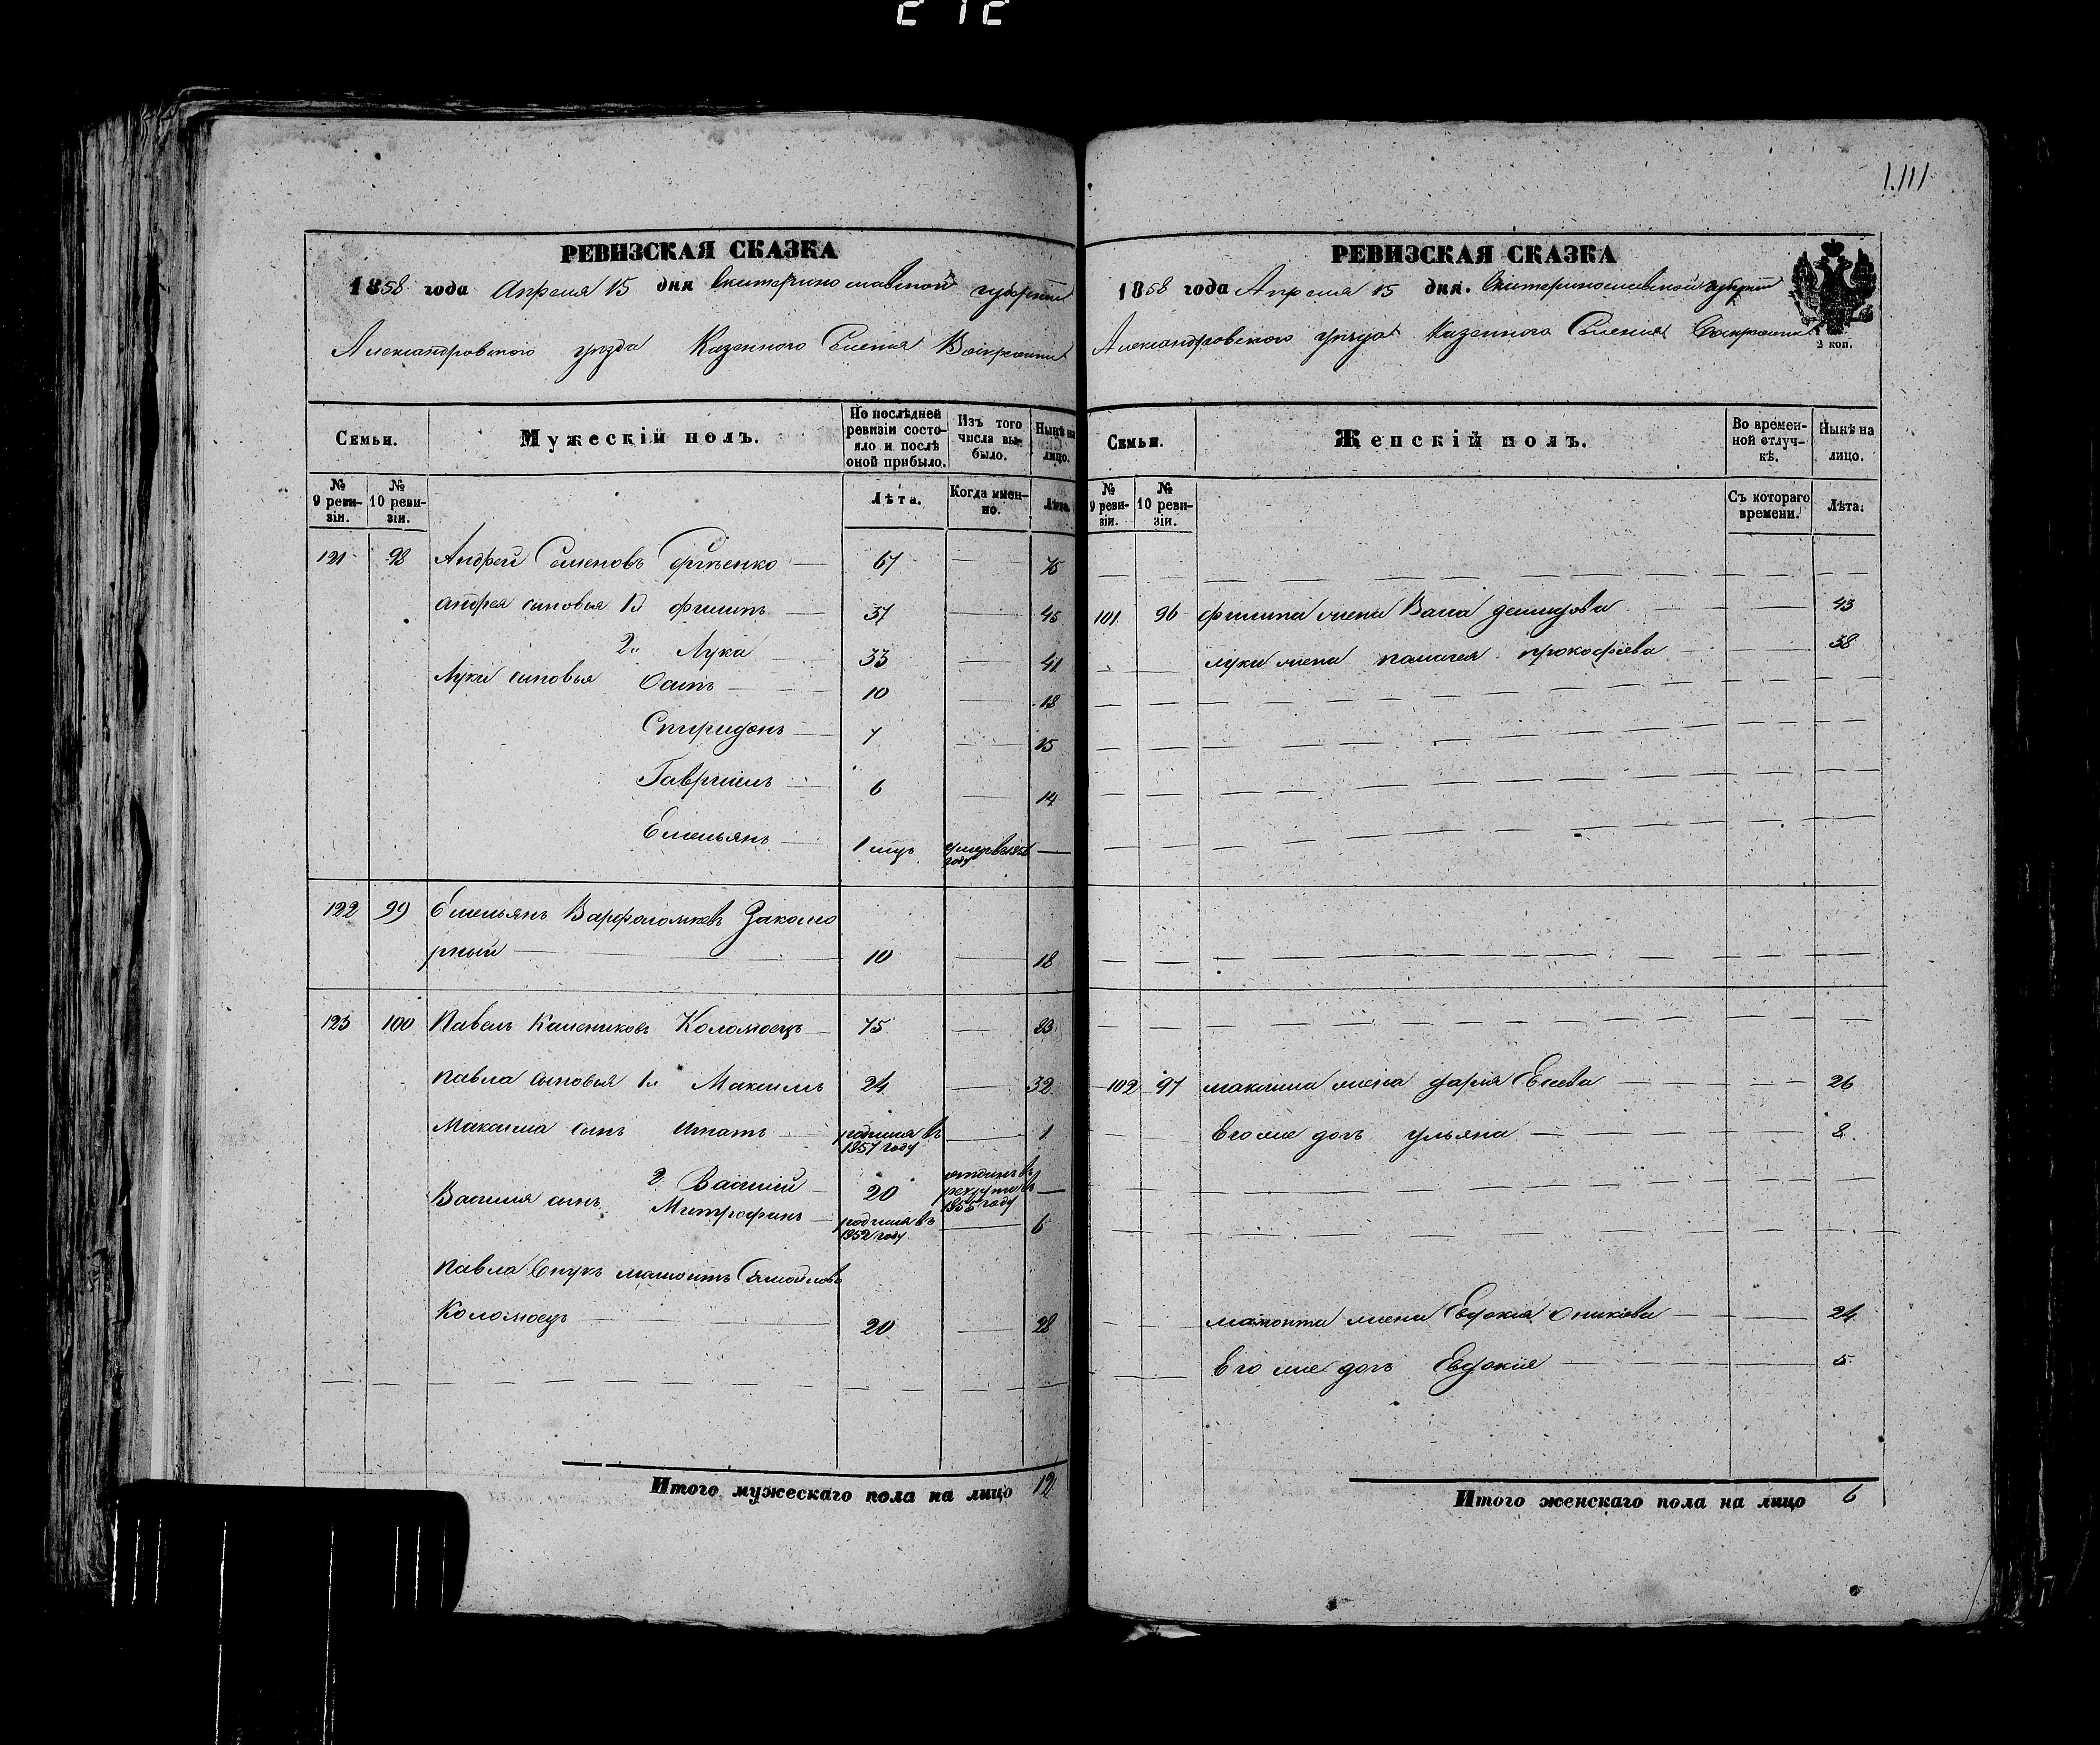 1.111
РЕВИЗСКАЯ СКАЗКА
1858 года Апреля 15 дня Екатеринославской губернии
Александровского уезда Казенного Селения
Семьи.
Мужескій полъ.
По послѣдней ревизіи состояло и послѣ оной прибыло.
Изъ того числа выбыло.
Нынѣ на лицо.
№ 9 ревизіи.
№ 10 ревизіи.
Лѣта.
Когда именно.
Лѣта.
121 98 Андрей Семеновъ 67 — 75
Андрея сыновья 1й Филипъ 37 — 45
2й Лука 33 — 41
Луки сыновья Осипъ 10 — 18
Спиридонъ 7 — 15
Гавриилъ 6 — 14
Емельянъ 1 мцъ умер в году —
122 99 Емельянъ Варфоломеевъ
10 — 18
123 100 Павелъ Коломоецъ 75 —
Павла сыновья 1й Максимъ 24 — 32
Максима сынъ Игнатъ родился въ 1857 году — 1
2 Василий 20 отданъ в рекруты в 1855 году —
Василия сынъ Митрофанъ родился въ 1852 году — 6
Павла внукъ Мамонтъ Самойловъ
Коломоецъ 20 — 28
Итого мужескаго пола на лицо 12
РЕВИЗСКАЯ СКАЗКА
1858 года Апреля 15 дня. Екатеринославской губернии
Александровского уезда Казенного Селения
2 коп.
Семьи.
Женскій полъ.
Во временной отлучкѣ.
Нынѣ на лицо.
№ 9 ревизіи.
№ 10 ревизіи.
Съ котораго времени.
Лѣта.
101 96 Филипа жена Васса Демидова — 43
Луки жена Пелагея Прокофіева — 38
102 97 Максима жена Дарья Евсеева — 26
Его же дочь Ульяна — 8
Мамонта жена Евдокия — 24
Его же дочь Евдокия — 5
Итого женскаго пола на лицо 6